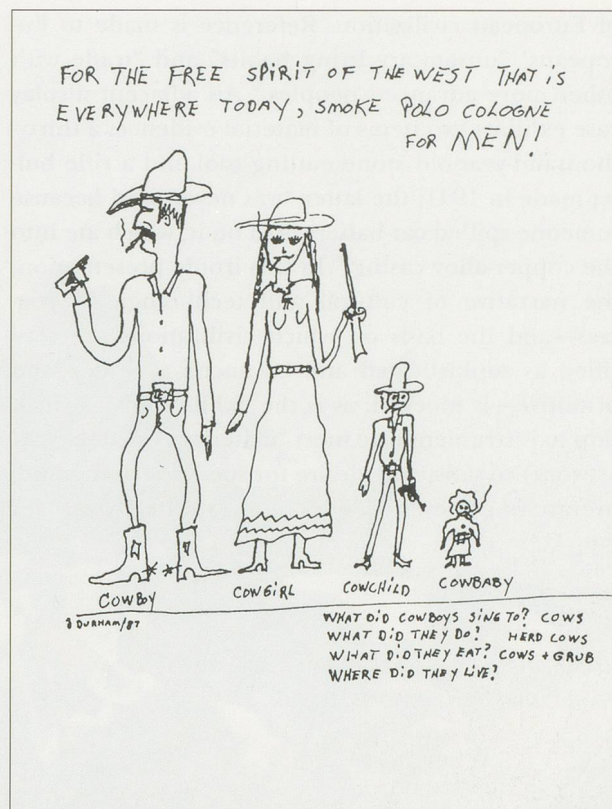 FOR THE FREE SPiRiT OF THE WEST THAT iS
EVERYWHERE TODAY, SMOKE POLO COLOGNE
FOR MEN!
COWBOY COWGIRL COWCHILD COWBABY
J DURHAM/87
WHAT DiD COWBOYS SiNG TO? COWS
WHAT DiD THEY DO? HERD COWS
WHAT DiD THEY EAT? COWS + GRUB
WHERE DiD THEY LiVE?